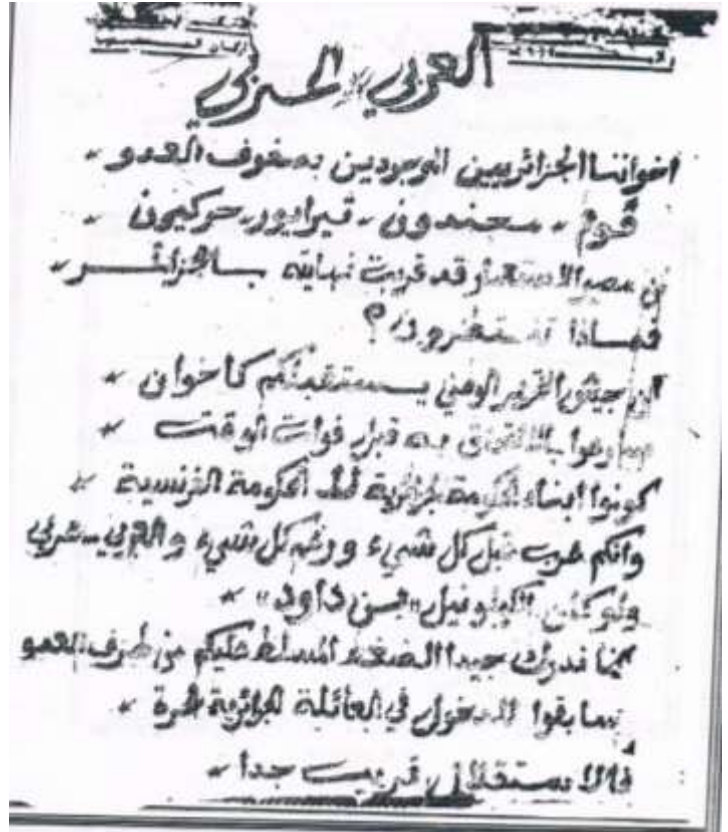 العربي الحربي
اخواننا الجزائريين الموجودين بصفوف العدو
قوم - مجندون - تيرايور - حركيون -
عصر الاستعمار قد قربت نهايته بالجزائر
فماذا تنتظرون؟
جيش التحرير الوطني يستقبلكم كاخوان
بالالتحاق به قبل فوات الوقت
كونوا ابناء الحكومة الجزائرية لا الحكومة الفرنسية
وانكم عرب قبل كل شيء ورغم كل شيء والعربي عربي
ولو كان الكولونيل "بن داود"
ندرك جيدا الضغط المسلط عليكم من طرف العدو
سابقوا للدخول في العائلة الجزائرية الحرة
فالاستقلال قريب جدا